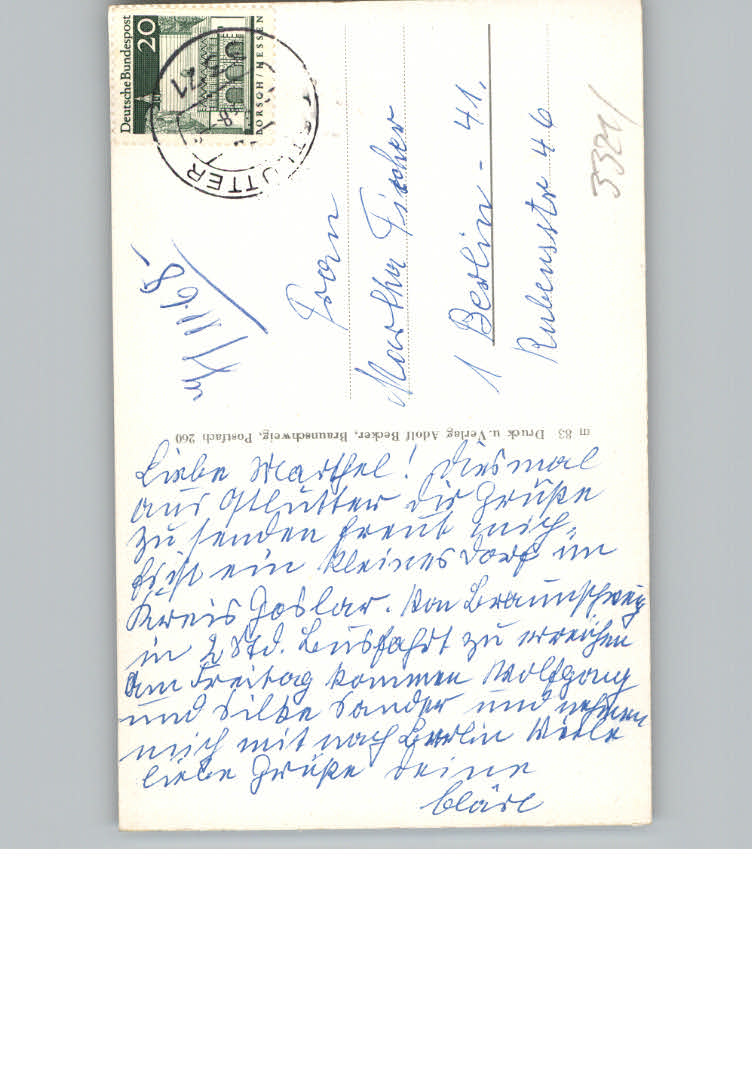 Deutsche Bundespost
20
LORSCH/HESSEN
Frau
Martha Fischer
1 Berlin - 41.
Rubensstr 46
m 83 Druck u. Verlag Adolf Becker, Braunschweig, Postfach 260
Liebe Marthel! Diesmal
aus Ostlutter dir Grüße
zu senden freut mich.
Es ist ein kleines Dorf im
Kreis Goslar. Von Braunschweig
in 2 Std. Busfahrt zu erreichen
Am Freitag kommen Wolfgang
und Silke Sander und nehmen
mich mit nach Berlin Viele
liebe Grüße Deine
Kläre